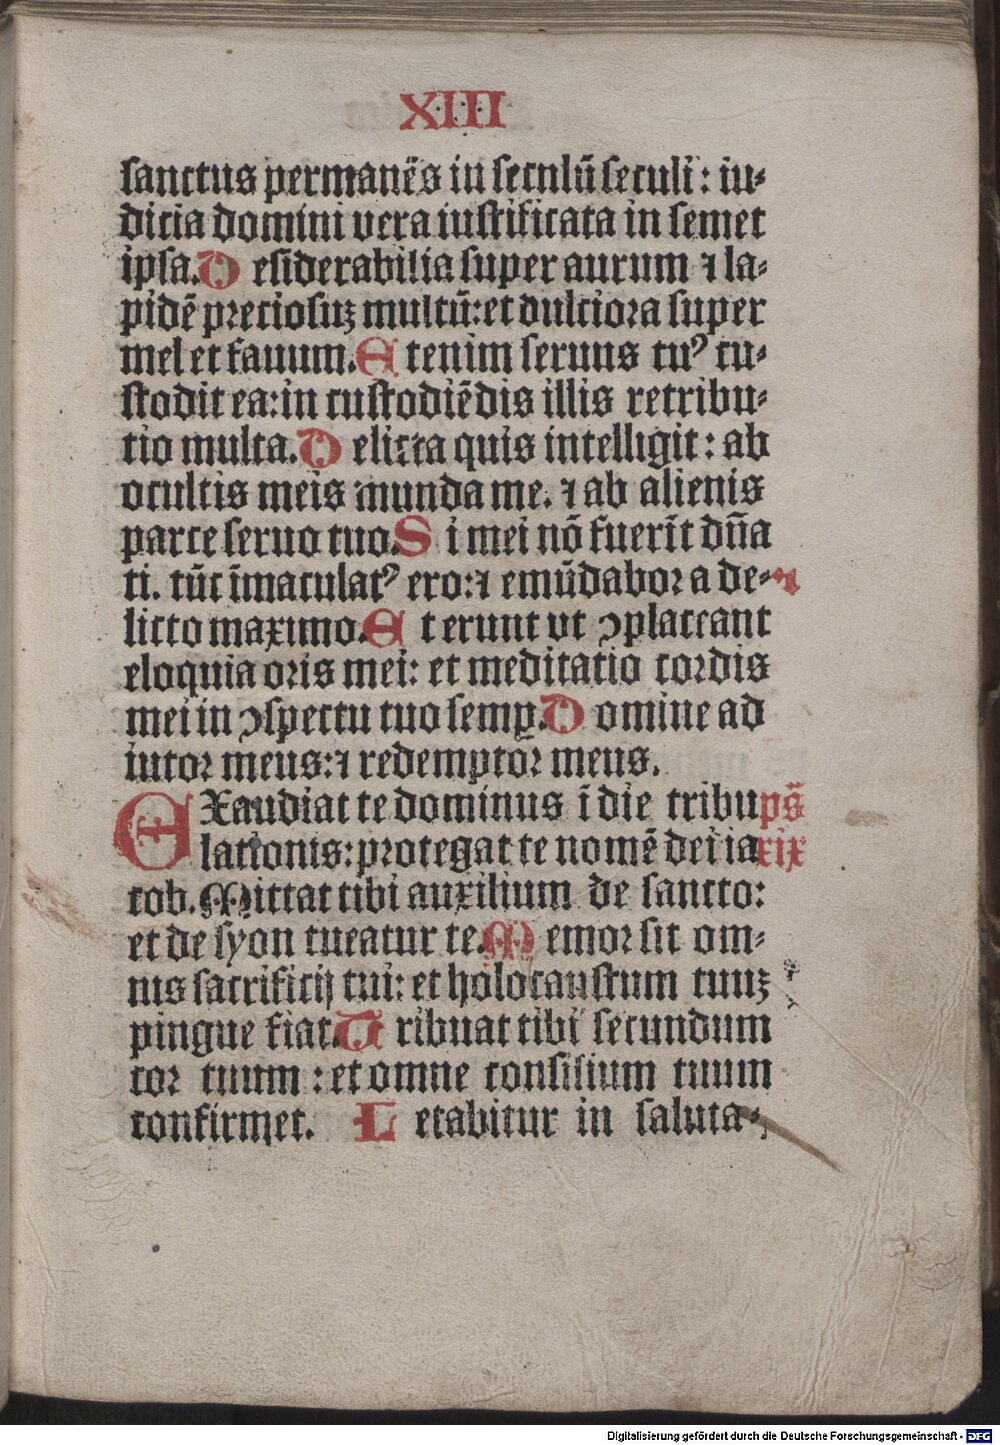 XIII
sanctus permanēs in seculū seculi: iu⸗
dicia domini vera iustificata in semet
ipsa. Desiderabilia super aurum ⁊ la⸗
pidē preciosuꝫ multū: et dulciora super
mel et fauum. Etenim seruus tuꝰ cu⸗
stodit ea: in custodiēdis illis retribu⸗
tio multa. Delicta quis intelligit: ab
ocultis meis munda me. ⁊ ab alienis
parce seruo tuo. Si mei nō fuerīt dn̄a
ti. tūc īmaculatꝰ ero: ⁊ emūdabor a de⸗
licto maximo. Et erunt ut ↄplaceant
eloquia oris mei: et meditatio cordis
mei in ↄspectu tuo semꝑ. Domine ad
iutor meus: ⁊ redemptor meus.
EXaudiat te dominus ī die tribu ps̄
lationis: protegat te nomē dei ia xix
cob. Mittat tibi auxilium de sancto:
et de syon tueatur te. Memor sit om⸗
nis sacrificij tui: et holocaustum tuuꝫ
pingue fiat. Tribuat tibi secundum
cor tuum: et omne consilium tuum
confirmet. Letabitur in saluta⸗
Digitalisierung gefördert durch die Deutsche Forschungsgemeinschaft - DFG